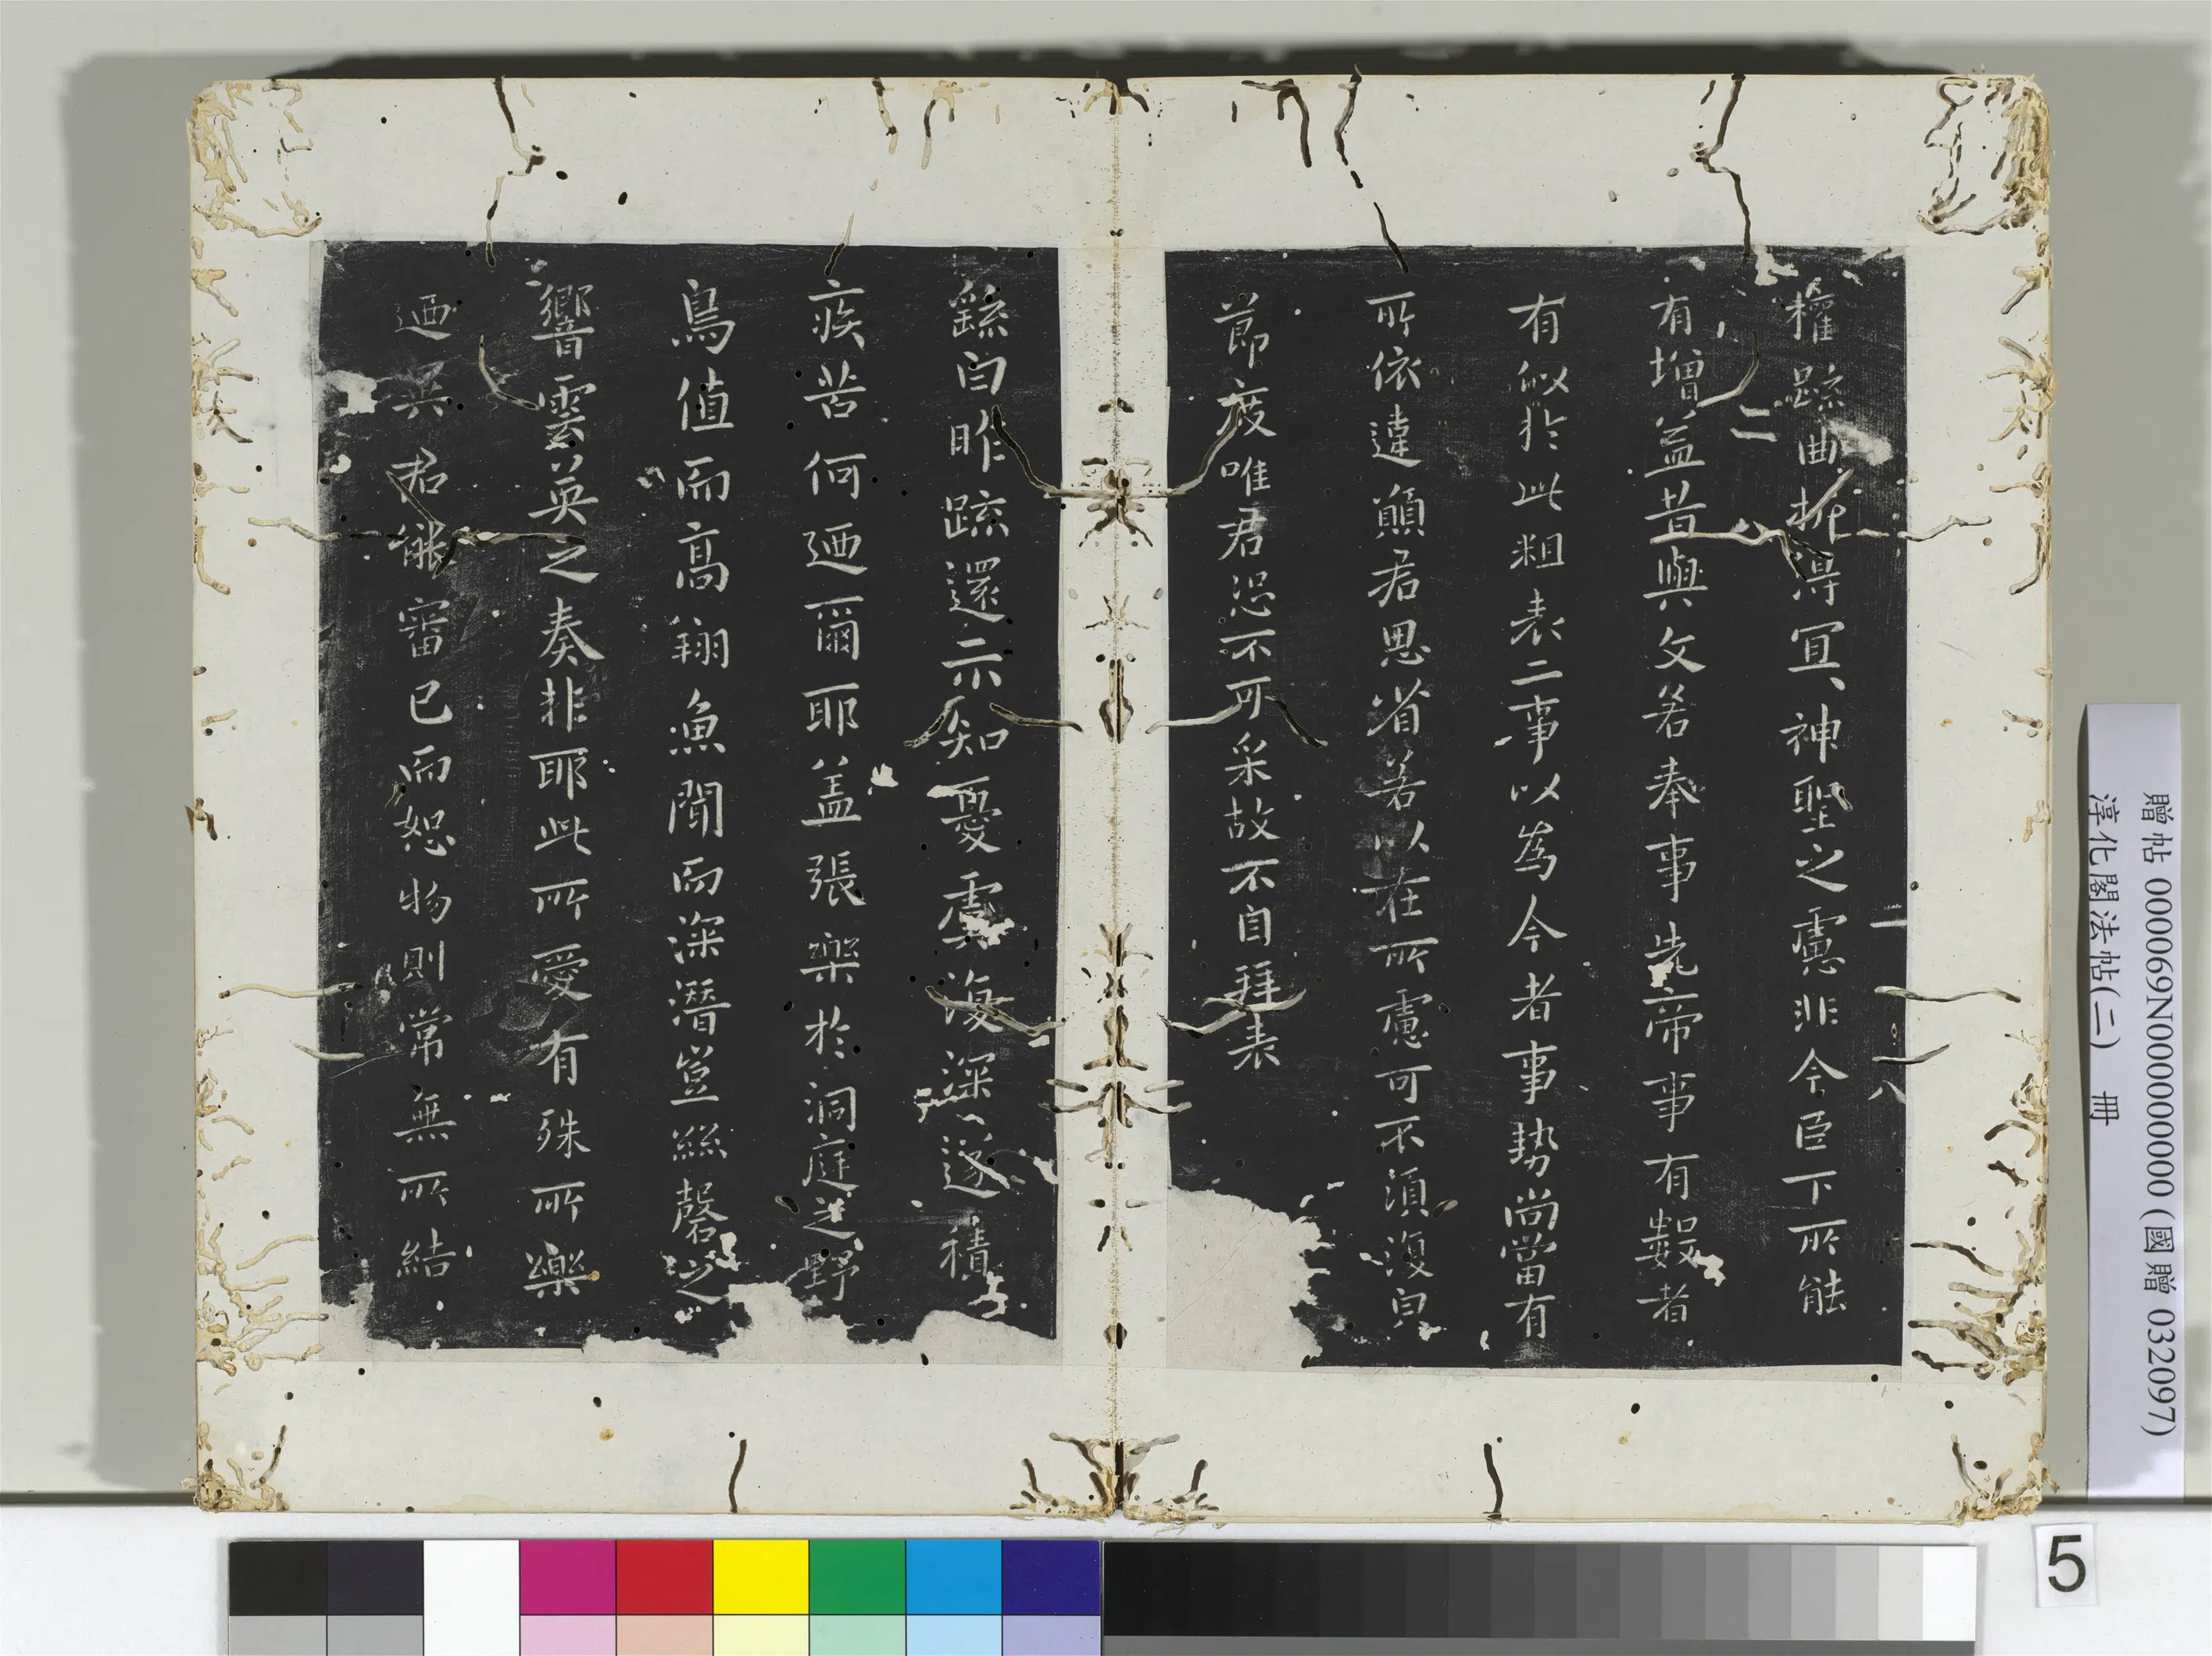 權疏曲折得冝神聖之慮非今臣下所能
有增益昔與文若奉事先帝事有數者
有似於此粗表二事以為今者事勢尚當有
所依違願君思省若以在所慮可不須復皃
節度唯君恐不可采故不自拜表
繇白昨疏還示知憂虞復深遂積
疾苦何迺爾耶蓋張樂於洞庭之野
鳥值而高翔魚聞而深潛豈絲磬之
響雲英之奏非耶此所愛有殊所樂
迺異君能審己而恕物則常無所結
二
八
贈帖 000069N000000000 (國贈 032097)
淳化閣法帖(二) 冊
5